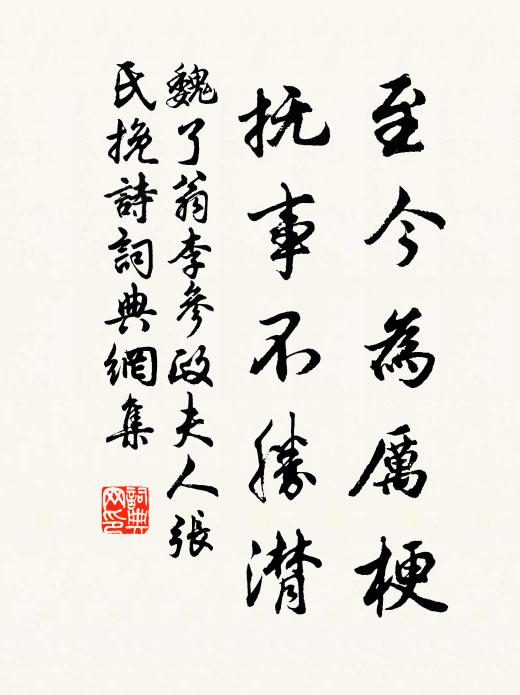 至今為厲梗
抚事不勝潸
魏了翁李參政夫人張
氏挽詩詞典網集
詞典
网印